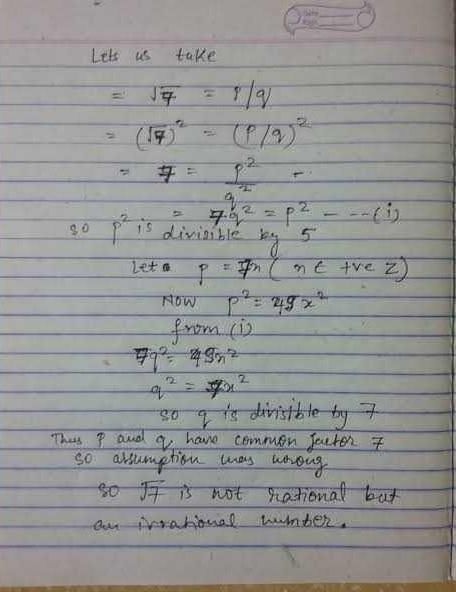 Lets us take
= √7 = P/q
= (√7)² = (P/q)²
= 7 = p²/q²
= 7q² = p² - - - (i)
so p² is divisible by 5
Let p = 7x ( x ∈ +ve Z)
Now p² = 49x²
from (i)
7q² = 49x²
q² = 7x²
so q is divisible by 7
Thus P and q have common factor 7
so assumption was wrong
so √7 is not rational but
an irrational number.